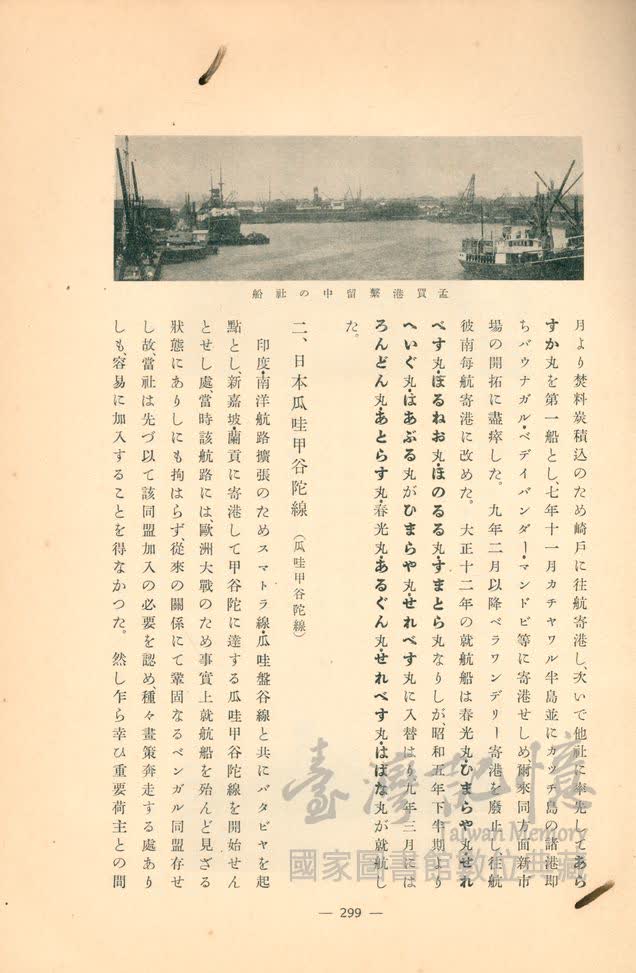 孟買港繫留中の社船
月より焚料炭積込のため崎戶に往航寄港し、次いで他社に率先してあら
すか丸を第一船とし、七年十一月カチャワル半島並にカッチ島の諸港即
ちバウナガル・ベデイバンダー・マンドビ等に寄港せしめ、爾來同方面新市
場の開拓に盡瘁した。九年二月以降ベラワンデリー寄港を廢止し、往航
彼南每航寄港に改めた。大正十二年の就航船は春光丸・ひまらや丸・せれ
べす丸・ぼるねお丸・ほのるる丸・すまとら丸なりしが、昭和五年下半期より
へいぐ丸・はあぶる丸がひまらや丸・せれべす丸に入替はり、九年三月には
ろんどん丸・あとらす丸・春光丸・あるぐん丸・せれべす丸・はばな丸が就航し
た。
二、日本瓜哇甲谷陀線（瓜哇甲谷陀線）
印度・南洋航路擴張のためスマトラ線・瓜哇盤谷線と共にバタビヤを起
點とし、新嘉坡・蘭貢に寄港して甲谷陀に達する瓜哇甲谷陀線を開始せん
とせし處、當時該航路には、歐洲大戰のため事實上就航船を殆んど見ざる
狀態にありしにも拘はらず、從來の關係にて鞏固なるベンガル同盟存せ
し故、當社は先づ以て該同盟加入の必要を認め、種々畫策奔走する處あり
しも、容易に加入することを得なかつた。然し乍ら幸ひ重要荷主との間
— 299 —
臺灣記憶
Taiwan Memory
國家圖書館數位典藏